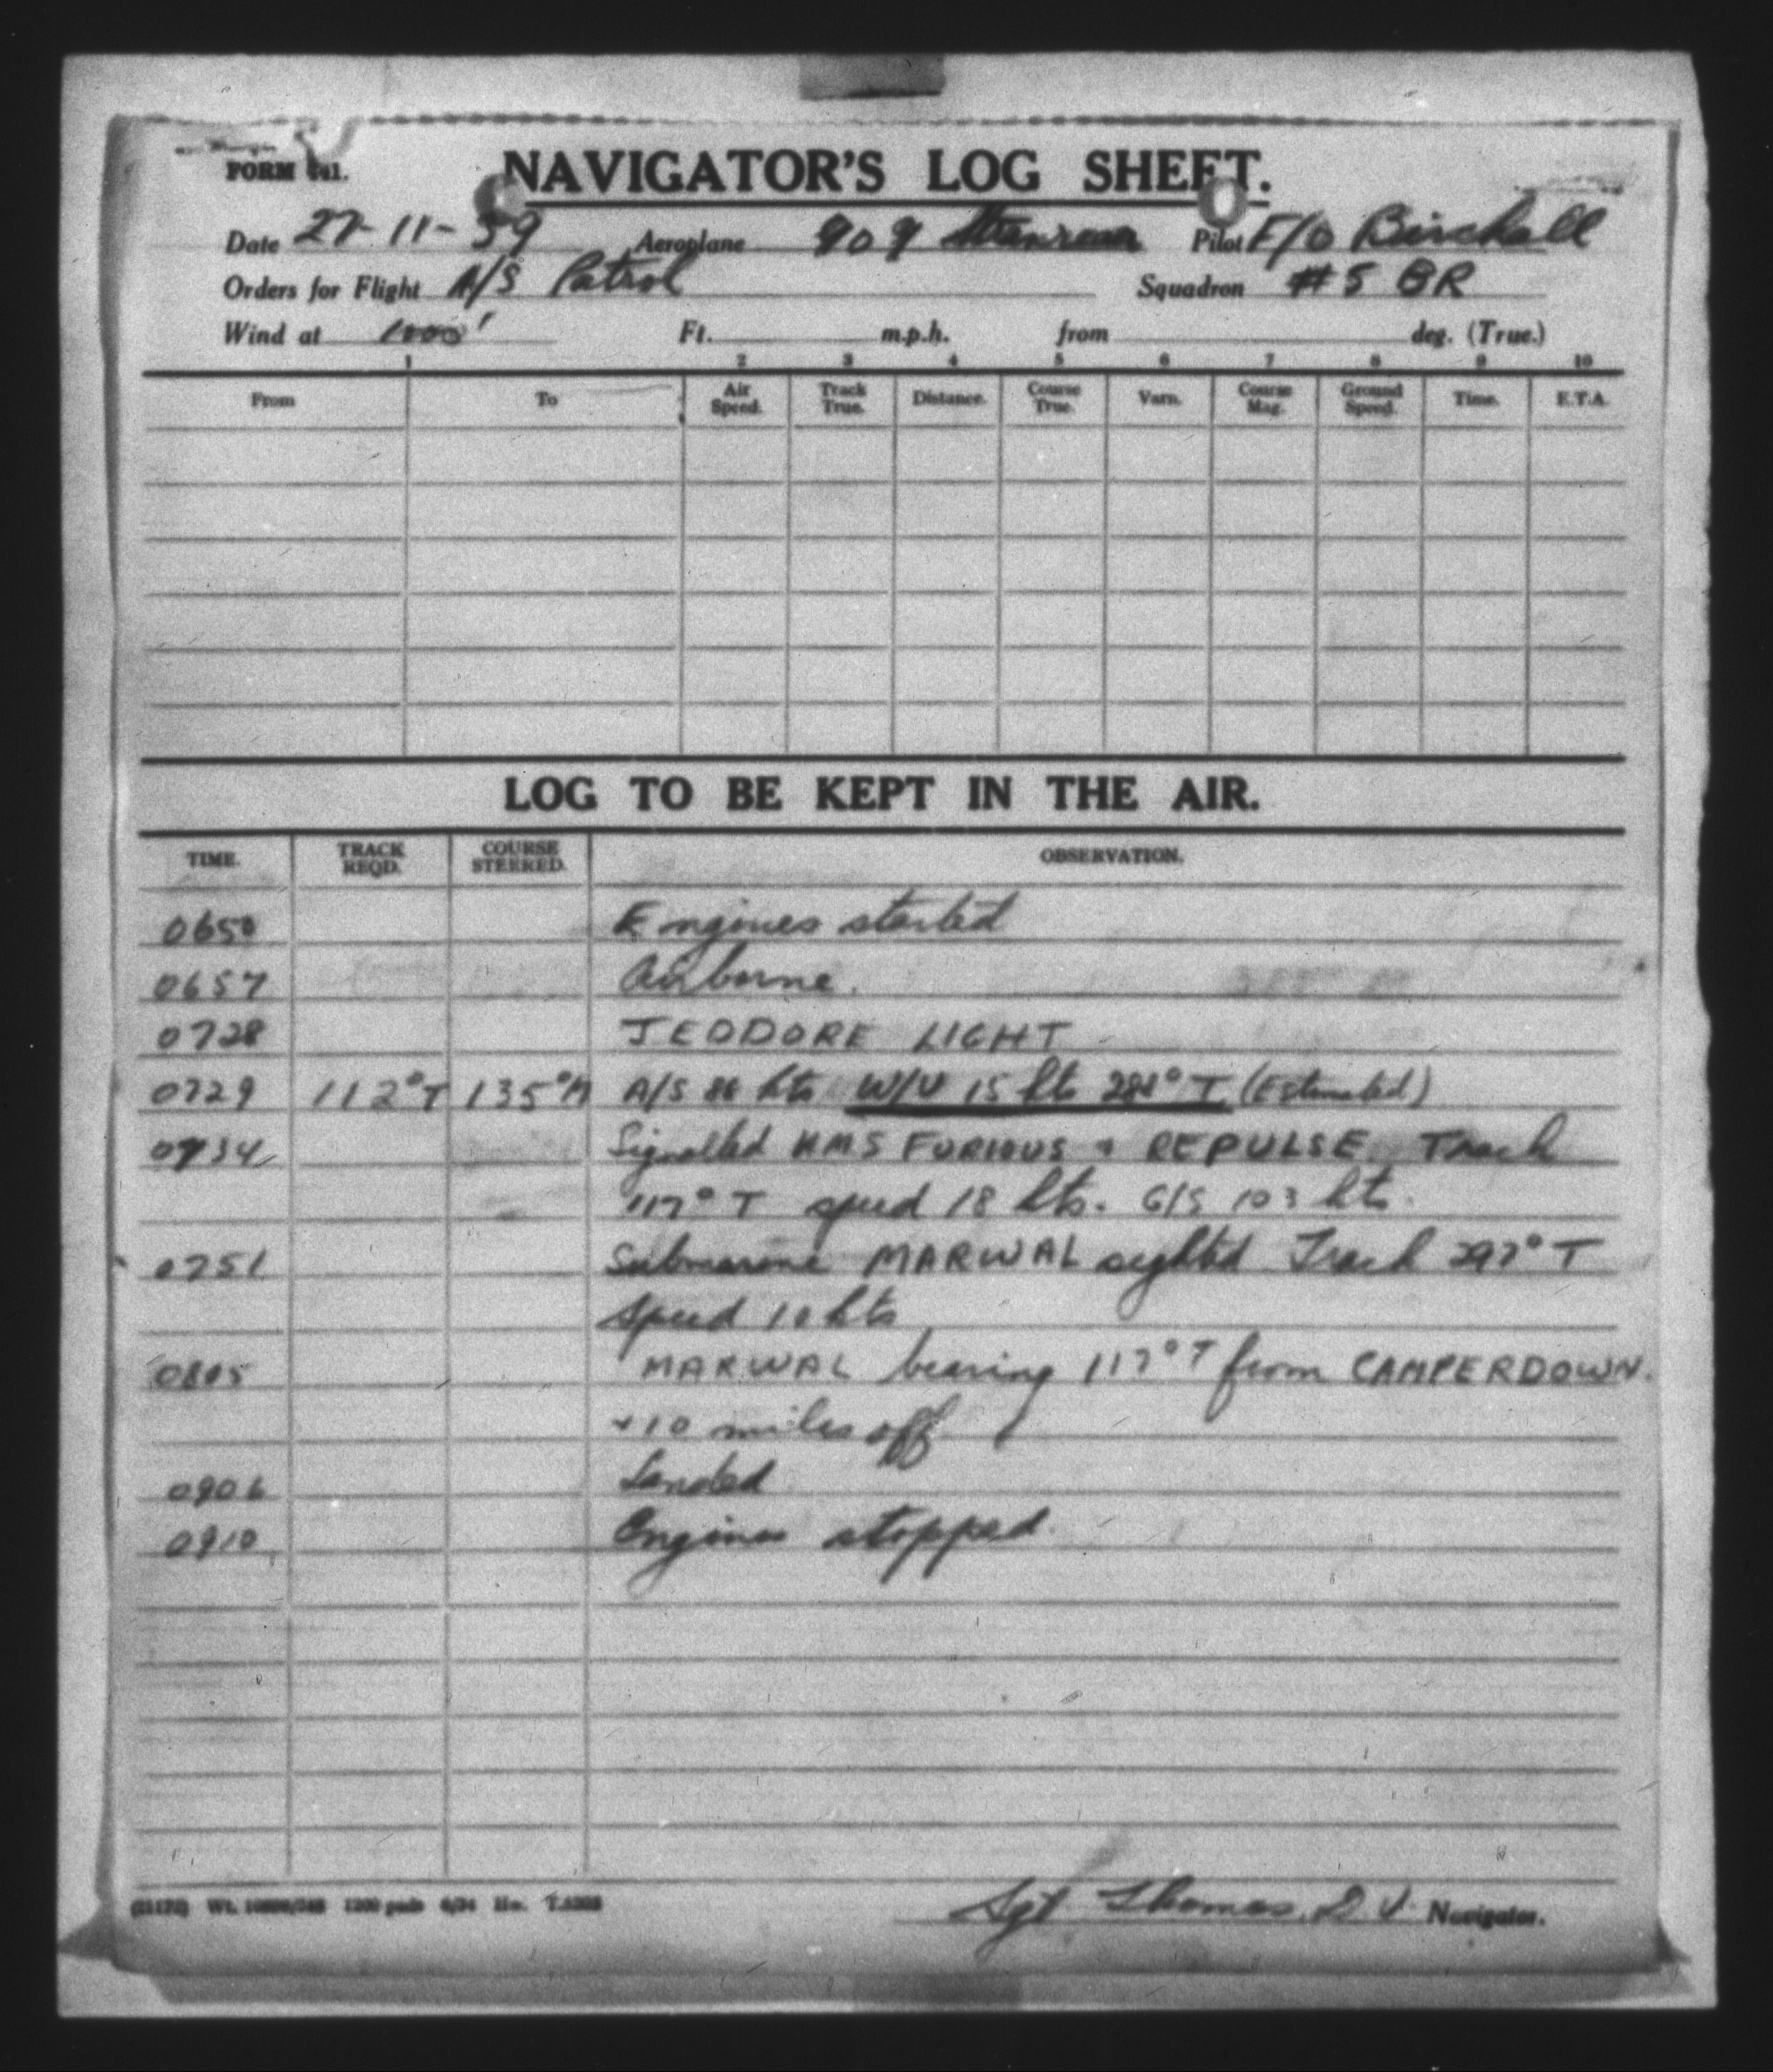 FORM 441.
NAVIGATOR'S LOG SHEET.
Date 27-11-39 Aeroplane 909 Stranraer Pilot F/O Birchall
Orders for Flight A/S Patrol Squadron #5 BR
Wind at 1000' Ft. m.p.h. from deg. (True.)
1 2 3 4 5 6 7 8 9 10
From To Air Speed. Track True. Distance. Course True. Varn. Course Mag. Ground Speed. Time. E.T.A.
LOG TO BE KEPT IN THE AIR.
TIME. TRACK REQD. COURSE STEERED. OBSERVATION.
0650 Engines started
0657 Airborne.
0728 JEDDORE LIGHT
0729 112°T 135°M A/S 86 kts W/V 15 kts 280° T (Estimated)
0734 Signalled HMS FURIOUS + REPULSE. Track
117° T speed 18 kts. G/S 103 kts.
0751 Submarine MARWAL sighted Track 297° T
speed 10 kts
0805 MARWAL bearing 117° T from CAMPERDOWN.
+10 miles off
0906 Landed
0910 Engines stopped.
1200 pads 6/34
Sgt. Thomas, Navigator.